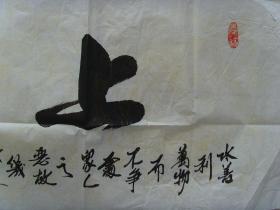 上
水善
利
萬物
而
不爭
處
眾人
之
惡故
幾